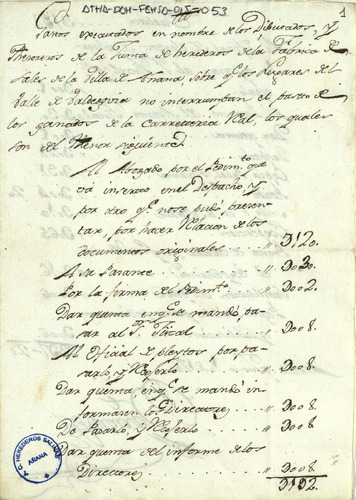 ATHA-DAH-FEHSA-015-053
1
Gastos executados en nombre de los Diputados, y
Thesoreros de la Junta de herederos de la Fabrica de
Sales de la Villa de Añana sobre q.e los Lugares del
Valle de Valdegovia no interrumban el pasto de
los ganados de la Carreteria Real, los quales
son del thenor siguiente
Al Abogado por el Pedim.to que
vá inserto en el Despacho, y
por otro q.e no se pudo presen-
tar, por hacer relacion de los
documentos originales .... " 0120.
A su Pasante .... " 0030.
Por la firma del Pedim.to .. " 0002.
Dar quenta en q.e se mandó pa-
sar al S.r Fiscal .... " 0008.
Al Oficial de pleytos por pa-
sarlo, y
Dar quenta en q.e se mandó in-
formaren los Directores .... " 0008.
De pasarlo, y .... " 0008.
Dar quenta del informe de los
Directores .... " 0008
0192.
C. HEREDEROS SALINAS
AÑANA